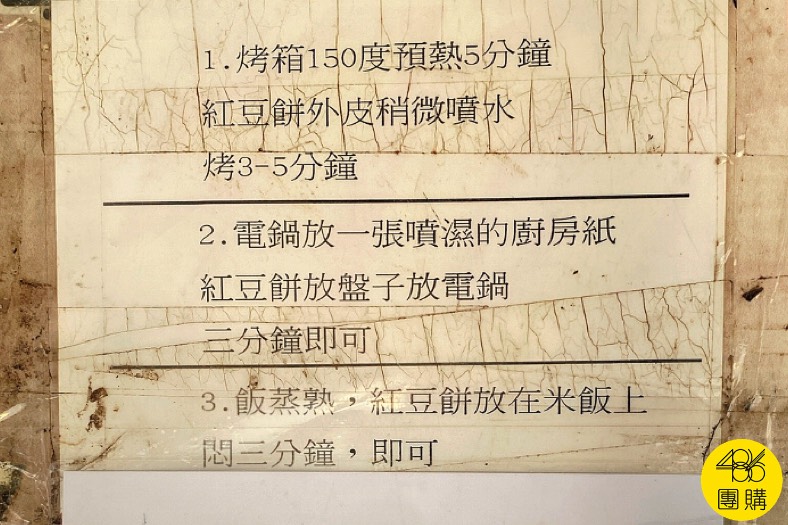 1.烤箱150度預熱5分鐘
紅豆餅外皮稍微噴水
烤3-5分鐘
2.電鍋放一張噴濕的廚房紙
紅豆餅放盤子放電鍋
三分鐘即可
3.飯蒸熟，紅豆餅放在米飯上
悶三分鐘，即可
486
團購